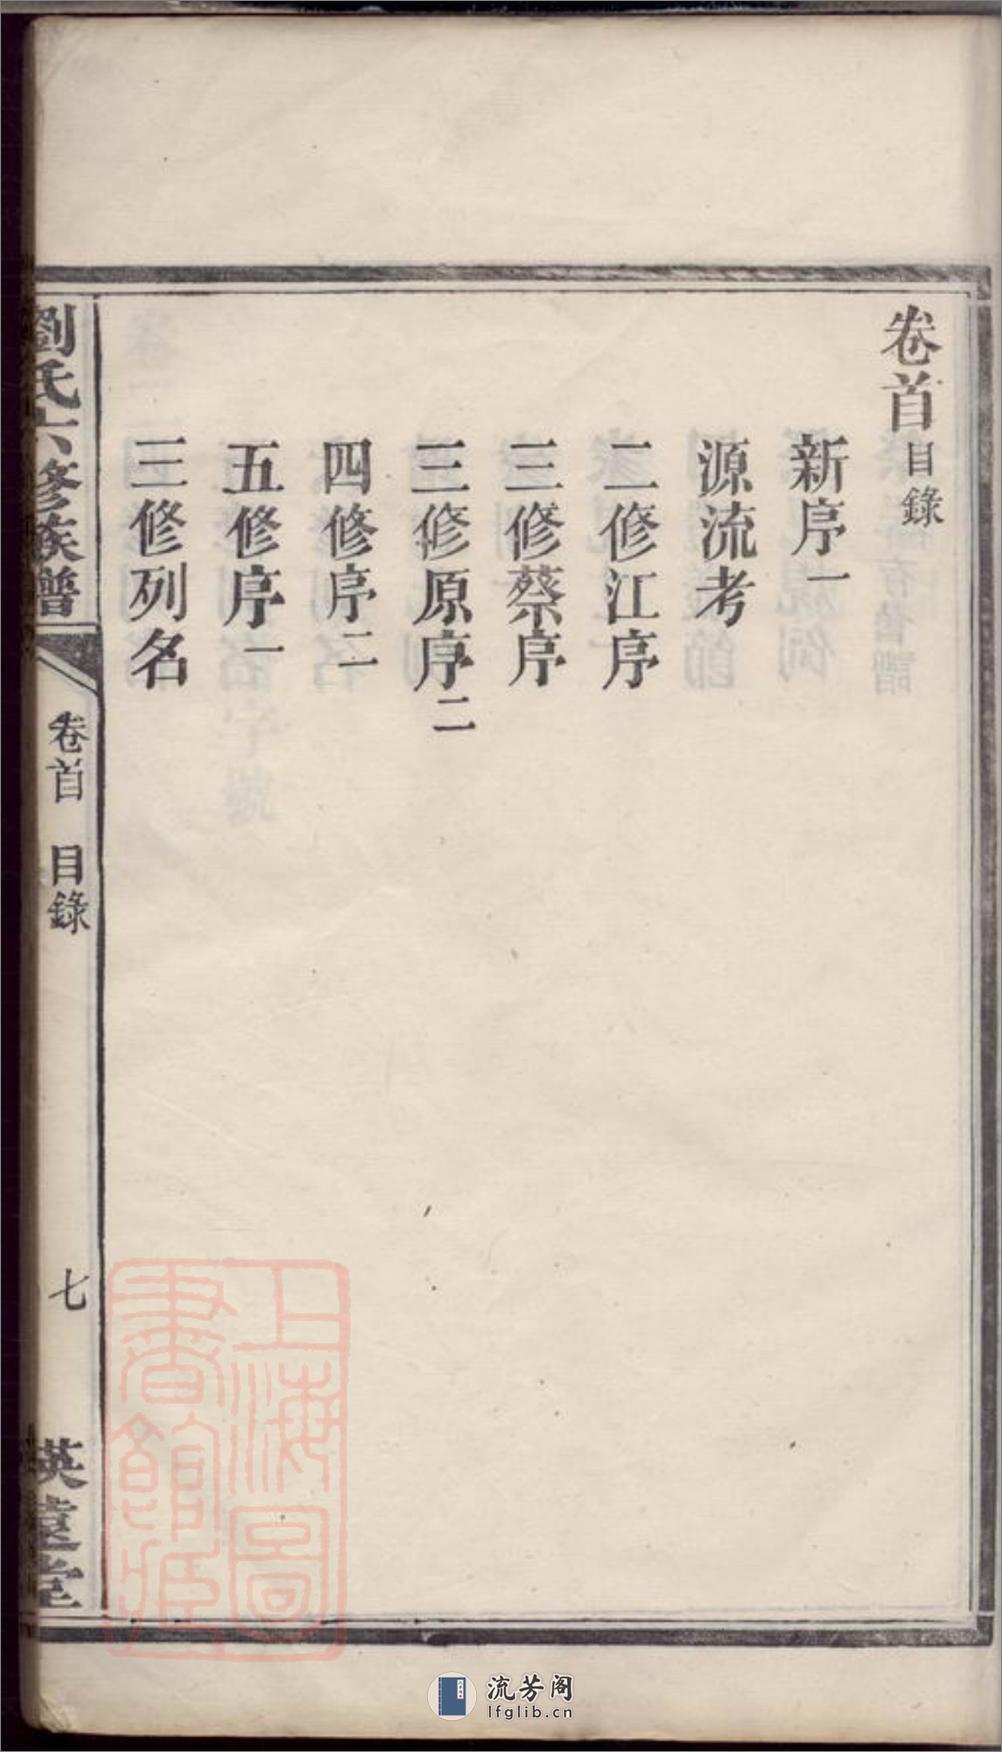 卷首目錄
新序一
源流考
二修江序
三修蔡序
三修原序二
四修序二
五修序一
三修列名
劉氏六修族譜
卷首 目錄
七
遠堂
上海圖
書館藏
流芳阁
lfglib.cn